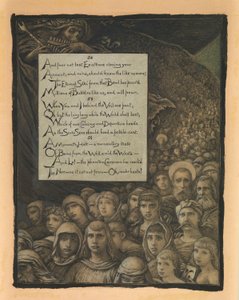 And fear not lest Existence closing your
Account, and mine, should know the like no more;
The Eternal Saki from that Bowl has pour'd
Millions of Bubbles like us, and will pour.
When You and I behind the Veil are past,
Oh, but the long, long while the World shall last,
Which of our Coming and Departure heeds
As the Sea's self should heed a pebble-cast.
A Moment's Halt—a momentary taste
Of Being from the Well amid the Waste—
And Lo!—the phantom Caravan has reach'd
The Nothing it set out from—Oh, make haste!